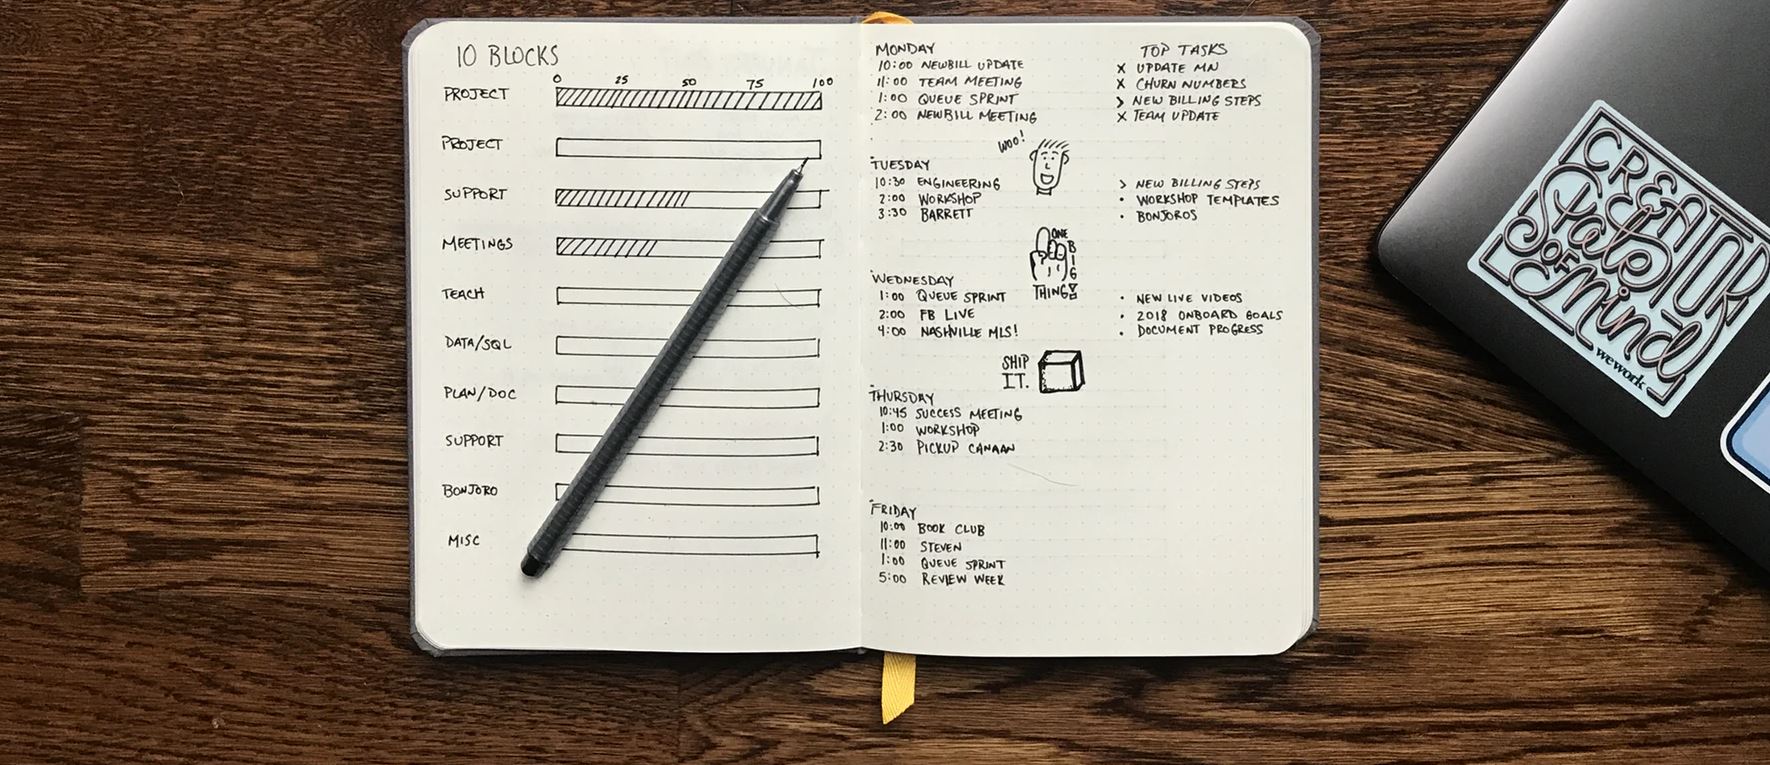 10 BLOCKS
0 25 50 75 100
PROJECT
PROJECT
SUPPORT
MEETINGS
TEACH
DATA/SQL
PLAN/DOC
SUPPORT
BONJORO
MISC
MONDAY
10:00 NEWBILL UPDATE
11:00 TEAM MEETING
1:00 QUEUE SPRINT
2:00 NEWBILL MEETING
TOP TASKS
X UPDATE MN
X CHURN NUMBERS
> NEW BILLING STEPS
X TEAM UPDATE
WOO!
TUESDAY
10:30 ENGINEERING
2:00 WORKSHOP
3:30 BARRETT
> NEW BILLING STEPS
• WORKSHOP TEMPLATES
• BONJOROS
ONE
BIG
THING!
WEDNESDAY
1:00 QUEUE SPRINT
2:00 FB LIVE
4:00 NASHVILLE MLS!
• NEW LIVE VIDEOS
• 2018 ONBOARD GOALS
• DOCUMENT PROGRESS
SHIP
IT.
THURSDAY
10:45 SUCCESS MEETING
1:00 WORKSHOP
2:30 PICKUP CANAAN
FRIDAY
10:00 BOOK CLUB
11:00 STEVEN
1:00 QUEUE SPRINT
5:00 REVIEW WEEK
CREATOR
State
OF
Mind
wework